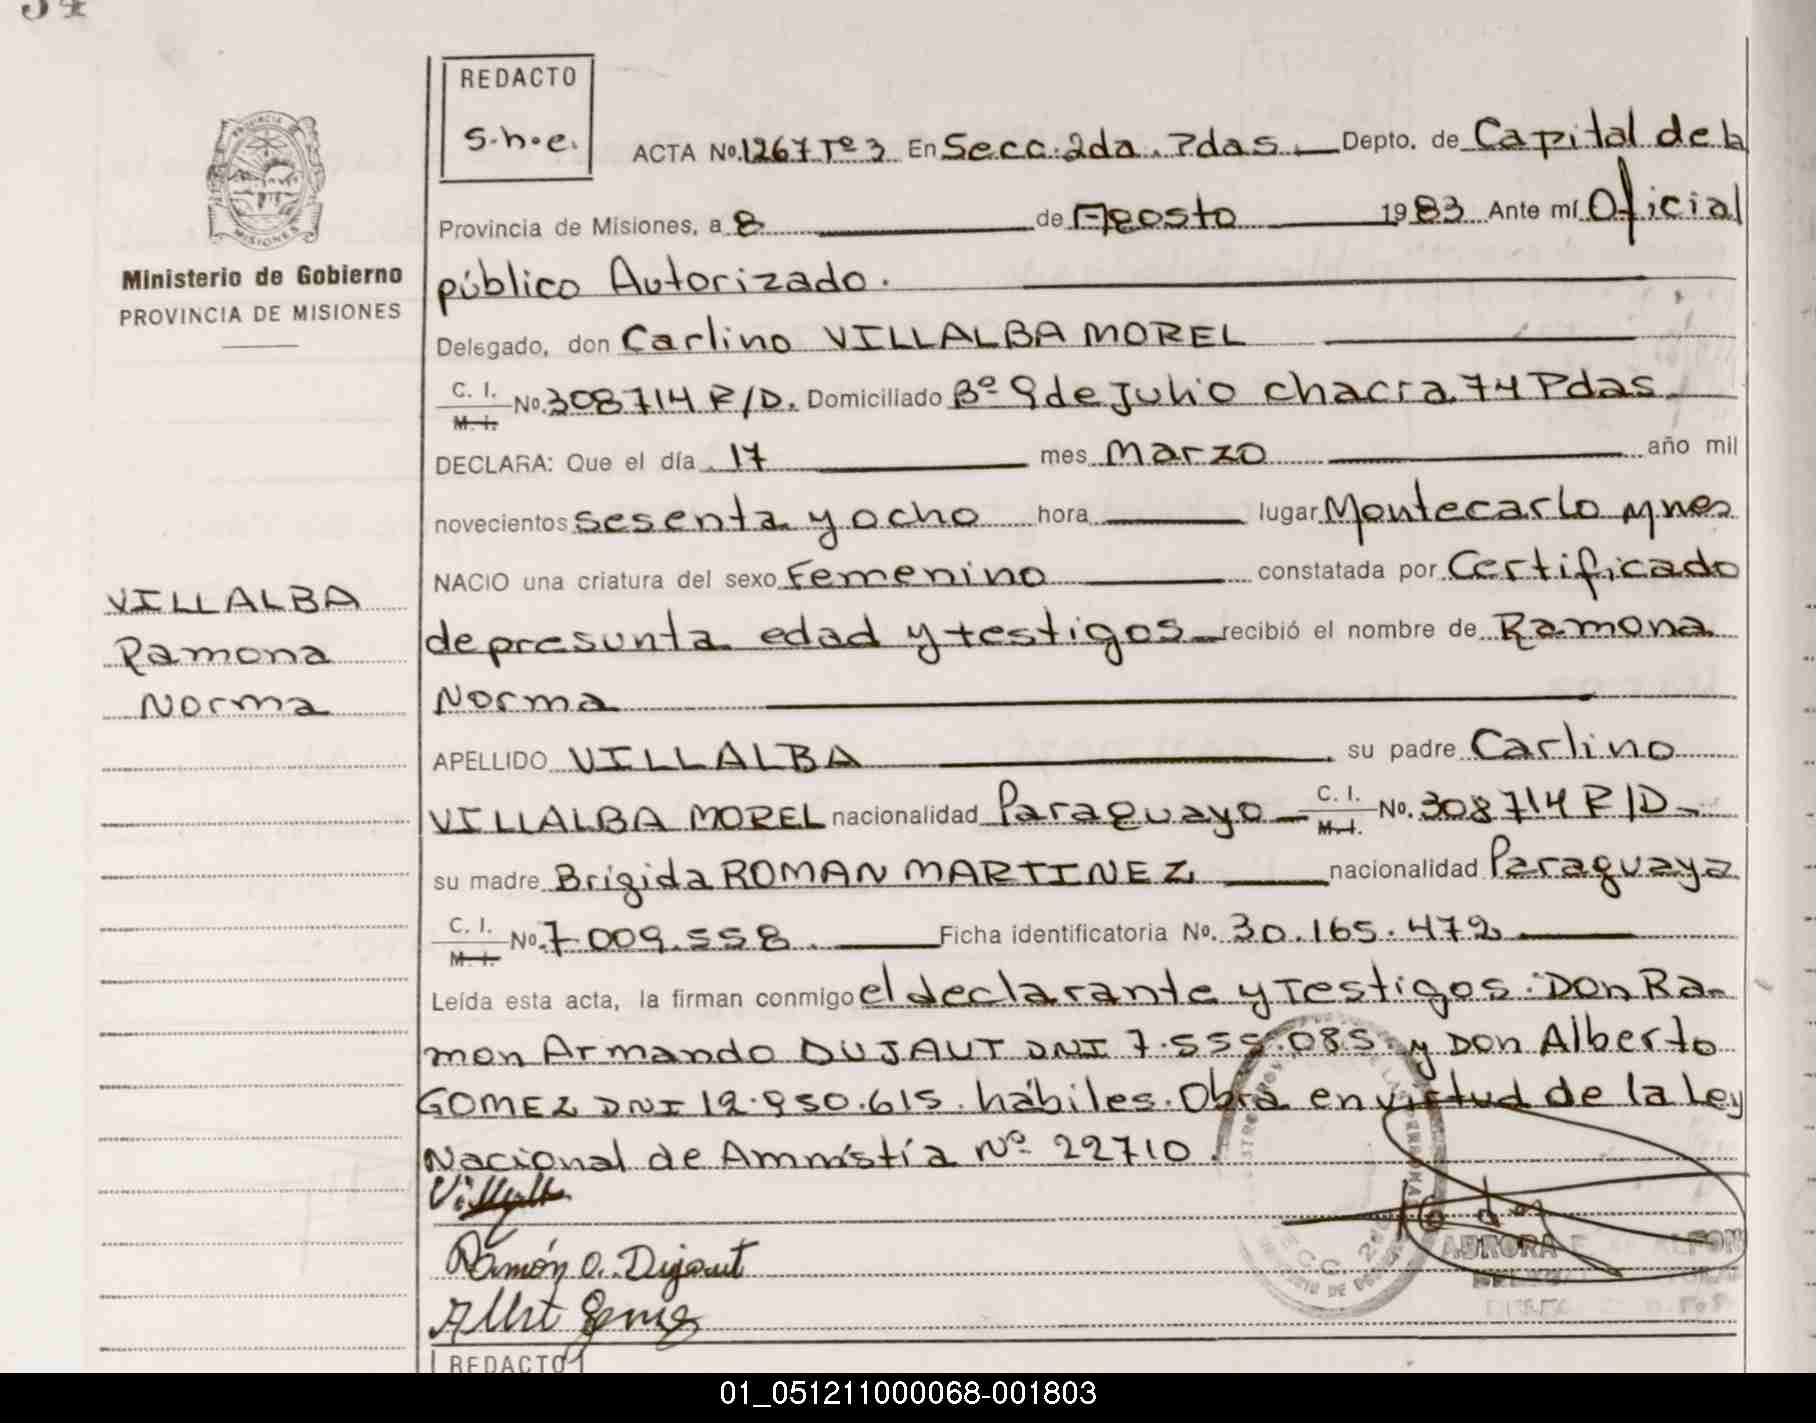 REDACTO
s.h.e.
ACTA No. 1267 Tº 3 En Secc. 2da. Pdas. Depto. de Capital de la
Provincia de Misiones, a 8 de Agosto 1983 Ante mí Oficial
público Autorizado.
Delegado, don Carlino VILLALBA MOREL
C. I. M. I. No. 308714 R/D. Domiciliado Bº 9 de Julio chacra 74 Pdas.
DECLARA: Que el día 17 mes Marzo año mil
novecientos sesenta y ocho hora lugar Montecarlo Mnes
NACIO una criatura del sexo Femenino constatada por Certificado
de presunta edad y testigos recibió el nombre de Ramona
Norma
APELLIDO VILLALBA su padre Carlino
VILLALBA MOREL nacionalidad Paraguayo C. I. M. I. No. 308714 R/D
su madre Brigida ROMAN MARTINEZ nacionalidad Paraguaya
C. I. M. I. No. 7.009.558. Ficha identificatoria No. 30.165.472
Leída esta acta, la firman conmigo el declarante y testigos: Don Ra-
mon Armando DUJAUT DNI 7.555.085. y Don Alberto
GOMEZ DNI 12.950.615. hábiles. Obra en virtud de la Ley
Nacional de Amnistía Nº 22710.
Ramón A. Dujaut
AURORA
REDACTO
PROVINCIA
MISIONES
Ministerio de Gobierno
PROVINCIA DE MISIONES
VILLALBA
Ramona
Norma
01_051211000068-001803